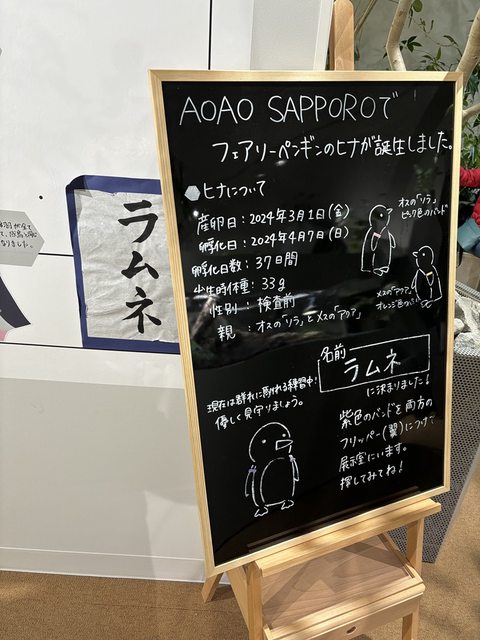 AOAO SAPPOROで
フェアリーペンギンのヒナが誕生しました。
ヒナについて
産卵日：2024年3月1日(金)
孵化日：2024年4月7日(日)
孵化日数：37日間
出生時体種：33g
性別：検査前
親：オスの「ソラ」とメスの「アクア」
オスの「ソラ」
ピンク色のバンド
メスの「アクア」
オレンジ色のバンド
名前
ラムネ
に決まりました！
現在は群れに馴れる練習中！
優しく見守りましょう。
紫色のバンドを両方の
フリッパー(翼)につけて
展示室にいます。
探してみてね！
ラムネ
なりました。